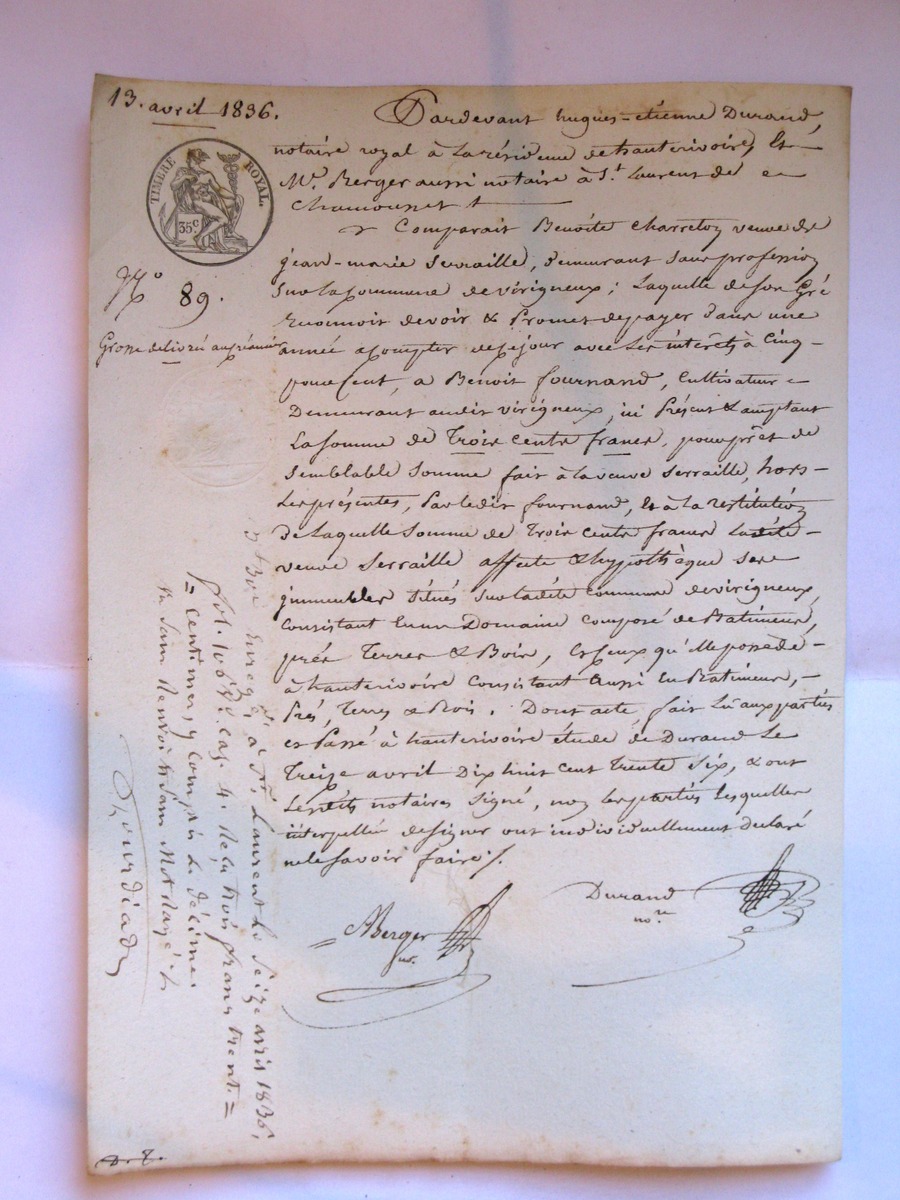 13. avril 1836.
TIMBRE ROYAL.
35c
No 89.
Grosse délivrée au créancier
Pardevant hugues-étienne Durand,
notaire royal à La résidence de hauterivoire, Et
Mr. Berger aussi notaire à St. Laurent de
Chamousset
Comparait Benoite Charretoy veuve de
jean-marie Serraille, demeurant sans profession
sur la Commune de virigneux; Laquelle de son Gré
Reconnoit devoir & Promet depayer dans une
année acompter decejour avec Les intérêts à Cinq
pour Cent, a Benoit fournand, Cultivateur
Demeurant audit virigneux, ici Présent & acceptant
La Somme de Trois cents francs, pour prêt de
Semblable Somme fait à La veuve Serraille, hors
Les présentes, Par ledit fournand, Et à La restitution
de Laquelle Somme de Trois cents francs Ladite
veuve Serraille affecte & hypothèque Ses
jmmeubles Situés Sur ladite Commune devirigneux,
Consistant En un Domaine Composé de Batimens,
prés Terres & Bois, Et Ceux qu'elle possède
à hauterivoire Consistant aussi En Batimens,
Pré, Terres & Bois. Dont acte, fait Lu aux parties
et Passé à hauterivoire étude de Durand Le
Treize avril Dix huit Cent Trente Six, & ont
Lesdits notaires Signé, non Les parties Lesquelles
interpellées de signer ont individuellement déclaré
ne le Savoir faire /.
ABerger
nre.
Durand
nore
Enregé. à St. Laurent Le Seize avril 1836,
fol. 106 Vo. cas. 4. Reçu trois francs trente
= centimes, y compris Le décime
Sans Renvoi ni Sans Mot Rayé